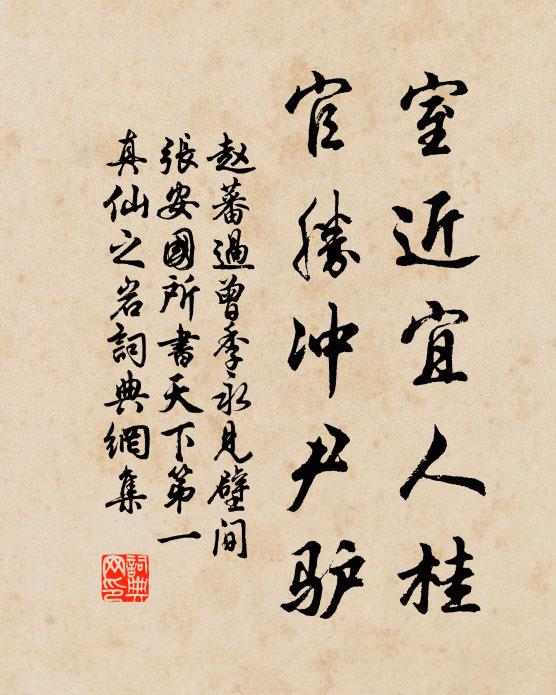 室近宜人桂
官勝冲尹驴
赵蕃過曾季永見壁间
張安國所書天下第一
真仙之岩詞典網集
詞典
网印